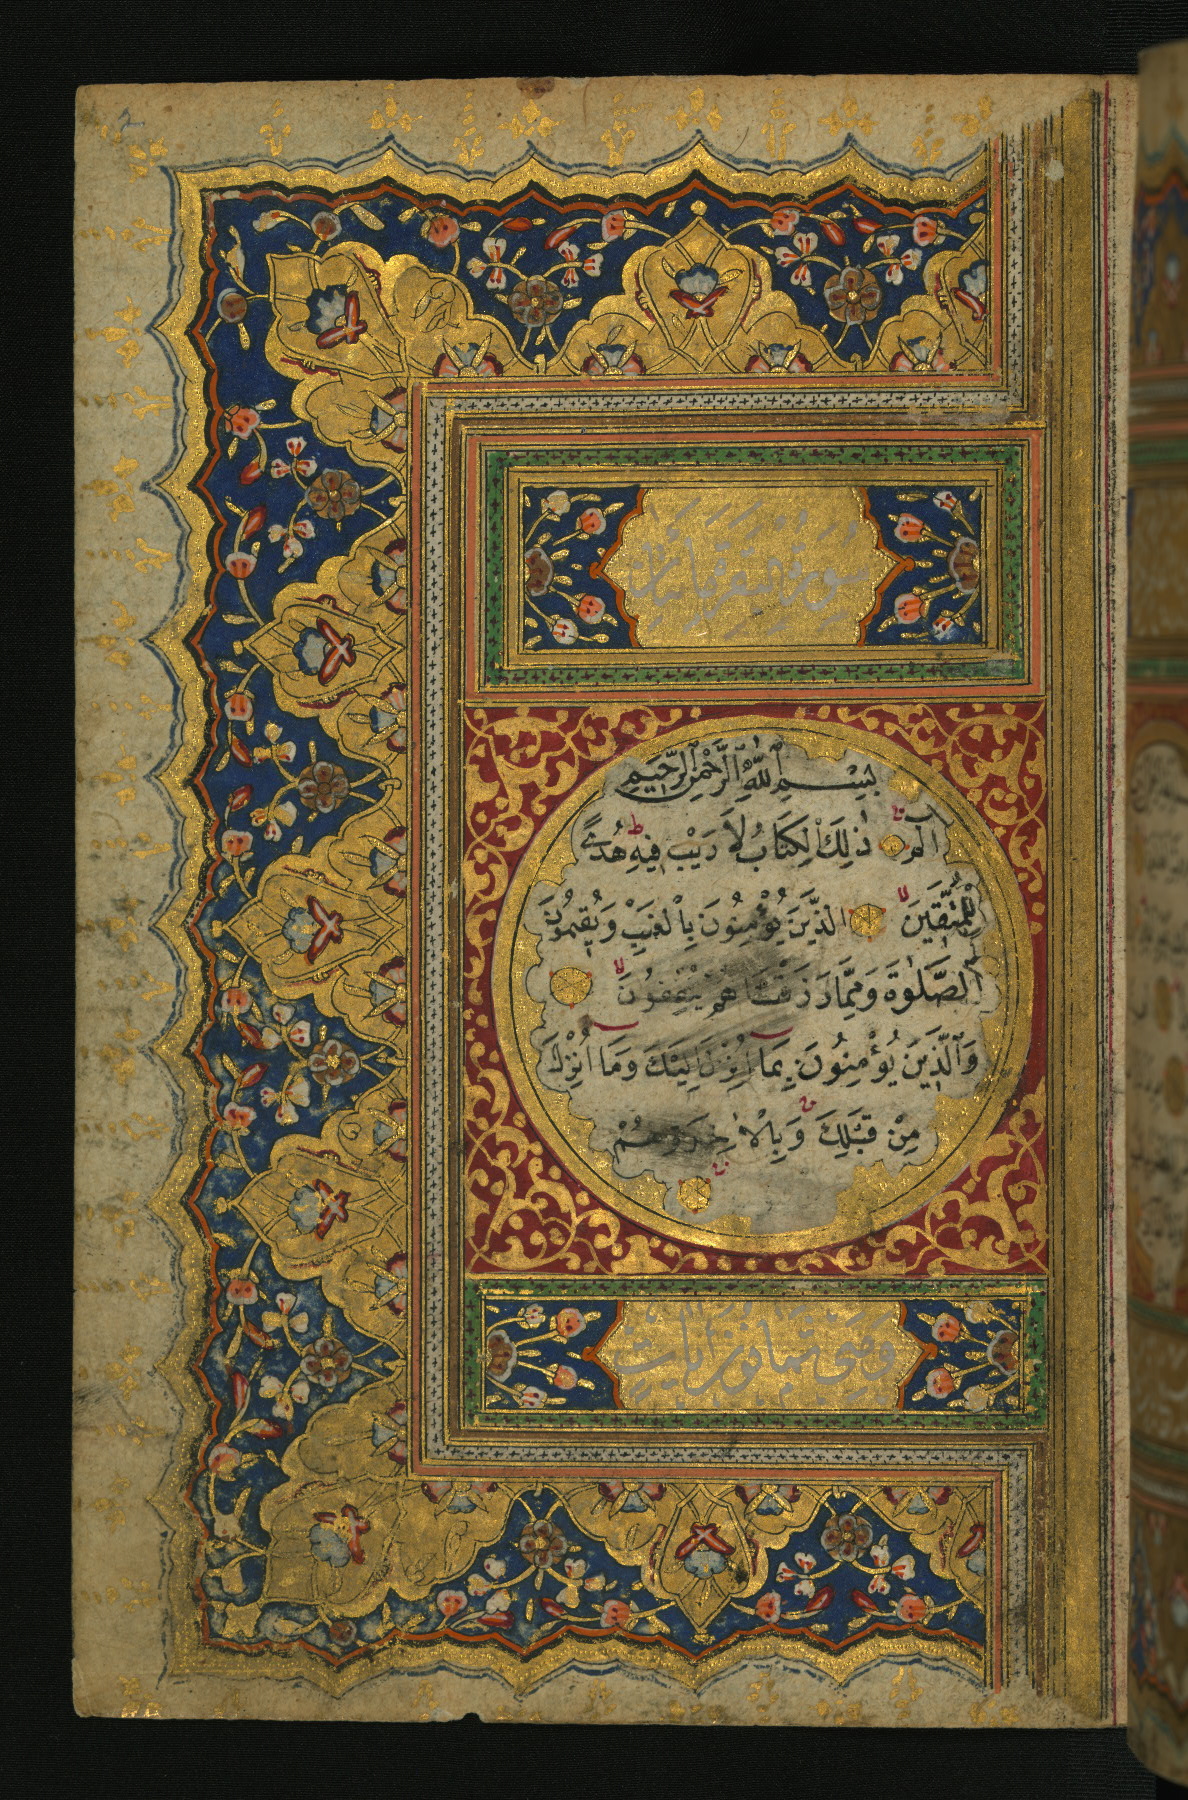 سُورَةُ الْبَقَرَة
بِسْمِ اللّٰهِ الرَّحْمٰنِ الرَّحِيمِ
الٓمٓ ذٰلِكَ الْكِتَابُ لَا رَيْبَ فِيهِ هُدًى
لِلْمُتَّقِينَ الَّذِينَ يُؤْمِنُونَ بِالْغَيْبِ وَيُقِيمُونَ
الصَّلٰوةَ وَمِمَّا رَزَقْنَاهُمْ يُنْفِقُونَ
وَالَّذِينَ يُؤْمِنُونَ بِمَا أُنْزِلَ إِلَيْكَ وَمَا أُنْزِلَ
مِنْ قَبْلِكَ وَبِالْاٰخِرَةِ هُمْ
وَهِيَ آيَاتٍ
2